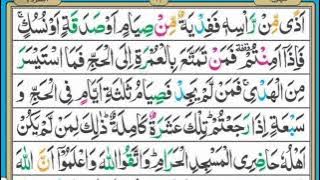 اَذًى مِّنْ رَّاْسِهٖ فَفِدْيَةٌ مِّنْ صِيَامٍ اَوْ صَدَقَةٍ اَوْ نُسُكٍ ۚ
فَاِذَاۤ اَمِنْتُمْ ۥ فَمَنْ تَمَتَّعَ بِالْعُمْرَةِ اِلَى الْحَجِّ فَمَا اسْتَيْسَرَ
مِنَ الْهَدْىِ ۚ فَمَنْ لَّمْ يَجِدْ فَصِيَامُ ثَلٰثَةِ اَيَّامٍ فِى الْحَجِّ وَ
سَبْعَةٍ اِذَا رَجَعْتُمْ ؕ تِلْكَ عَشَرَةٌ كَامِلَةٌ ؕ ذٰلِكَ لِمَنْ لَّمْ يَكُنْ
اَهْلُهٗ حَاضِرِى الْمَسْجِدِ الْحَرَامِ ؕ وَاتَّقُوا اللّٰهَ وَاعْلَمُوْۤا اَنَّ اللّٰهَ